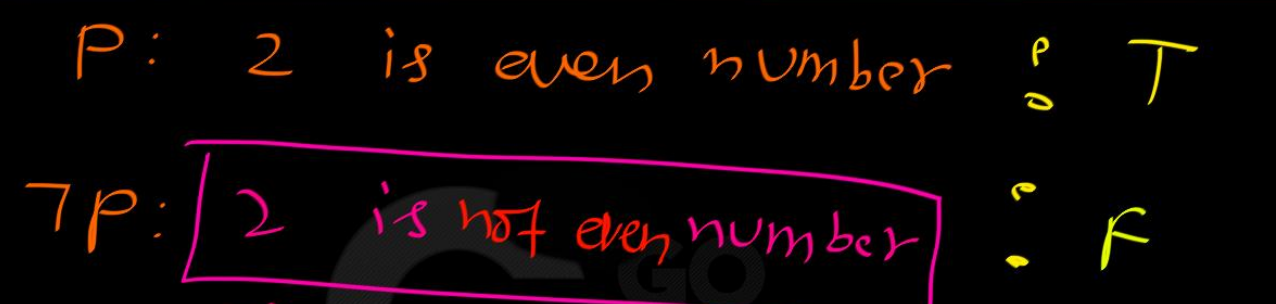 P: 2 is even number : T
¬P: 2 is not even number : F
GO